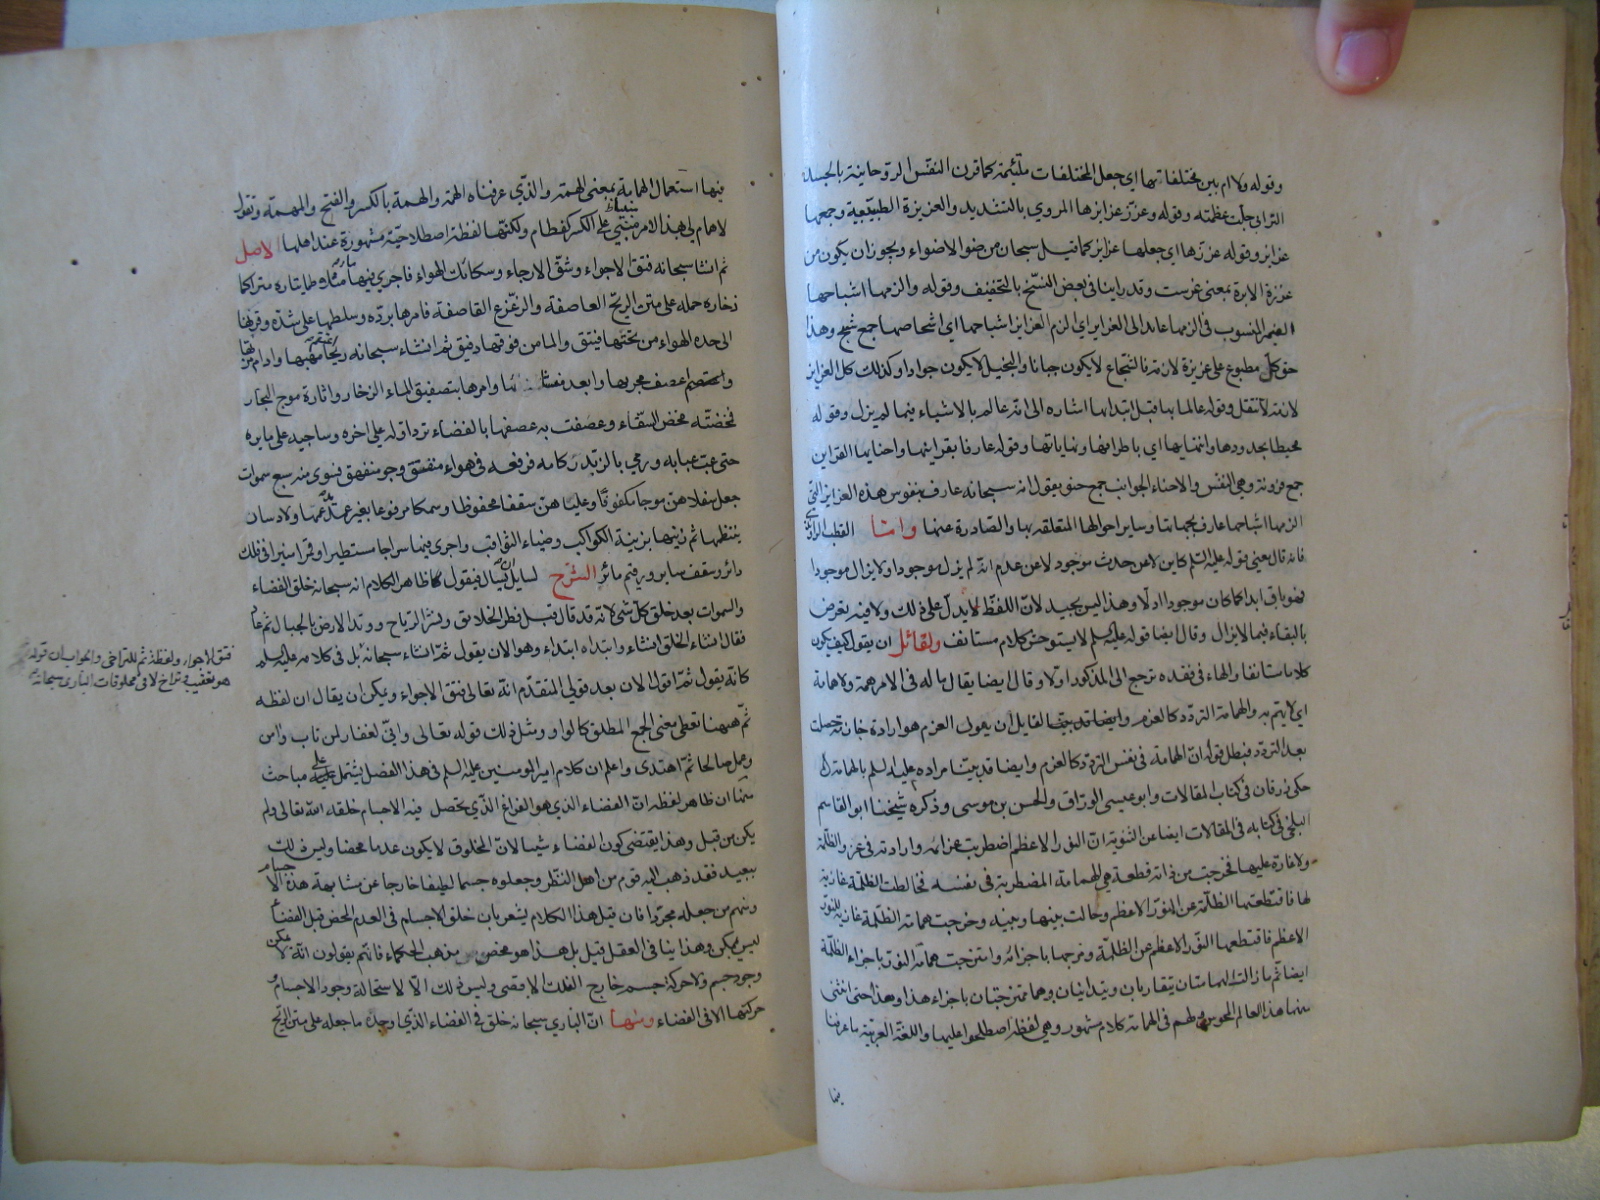 وقوله ولاام بين مختلفاتها اى جعل المختلفات ملتئمة كما قرن النفس الروحانية بالجسد
الترابى جلت عظمته وقوله وغرز غرايزها المروى بالتشديد والغريزة الطبيعية وجمعها
غرايز وقوله غرزها اى جعلها غرايز كما قيل سبحان من ضوا الاضواء ويجوز ان يكون من
غرزة الابرة بمعنى غرست وقد راينا فى بعض النسخ بالتخفيف وقوله والزمها اشباحها
الضمير المنسوب فى الزمها عايد الى الغرايز اى الزم الغرايز اشباحها اى اشخاصها جمع شبح وهذا
حق كل مطبوع على غريزة لازمته فالشجاع لا يكون جبانا والبخيل لا يكون جوادا وكذلك كل الغرايز
لازمة لا تنتقل وقوله عالما بها قبل ابتدائها اشاره الى انه عالم بالاشياء فيما لم يزل وقوله
محيطا بحدودها وانتهايها اى باطرافها ونهاياتها وقوله عارفا بقراينها واحنايها القراين
جمع قرونة وهى النفس والاحناء الجوانب جمع حنو يقول انه سبحانه عارف بنفوس هذه الغرايز التى
الزمها اشباحها عارف بجهاتها وساير احوالها المتعلقه بها والصادرة عنها واما القطب الراوندى
فانه قال يعنى قوله عليه السلم كاين لا عن حدث موجود لا عن عدم انه لم يزل موجودا ولا يزال موجودا
فهو باق ابدا كما كان موجودا اولا وهذا ليس بجيد لان اللفظ لا يدل على ذلك ولا فيه تعرض
بالبقاء فيما لا يزال وقال ايضا قوله عليه السلم لا يستوحش كلام مستانف ولقائل ان يقول كيف يكون
كلاما مستانفا والهاء فى فقده ترجع الى المذكور اولا وقال ايضا يقال ماله فى الامر همة ولا همامة
اى لا يهتم به والهمامة التردد كالعزم وايضا قد بينا لقايل ان يقول العزم هو ارادة جازمة حصلت
بعد التردد فبطل قوله ان الهمامة هى نفس التردد كالعزم وايضا قد بينا مراده عليه السلم بالهمامة
حكى زرقان فى كتاب المقالات وابو عيسى الوراق والحسن بن موسى وذكره شيخنا ابو القاسم
البلخى فى كتابه فى المقالات ايضا عن الثنوية ان النور الاعظم اضطربت عزائمه وارادته فى غزو الظلمة
والاغارة عليها فخرجت من ذاته قطعة هى الهمامة المضطربة فى نفسه فخالطت الظلمة غازية
لها فاقتطعتها الظلمة عن النور الاعظم وحالت بينها وبينه وخرجت همامة الظلمة غازية للنور
الاعظم فاقتطعها النور الاعظم عن الظلمة ومزجها باجزائه وامتزجت همامة النور باجزاء الظلمة
ايضا ثم ما زالت الهمامتان يتقاربان ويتدانيان وهما ممتزجتان باجزاء هذا وهذا حتى انبنى
منهما هذا العالم المحسوس ولهم فى الهمامة كلام مشهور وهى لفظة اصطلحوا عليها واللغة العربية ما عرفنا
فيها
فيها استعمال الهمامة بمعنى الهمة والذى عرفناه الهمة والهمة بالكسر والفتح والمهمة وتقول
لا همام لى بهذا الامر مبنى على الكسر كقطام ولكنها لفظة اصطلاحية مشهورة عند اهلها الاصل
ثم انشا سبحانه فتق الاجواء وشق الارجاء وسكائك الهواء فاجرى فيها ماء متلاطما تياره متراكما
زخاره حمله على متن الريح العاصفة والزعزع القاصفة فامرها برده وسلطها على شده وقرنها
الى حده الهواء من تحتها فتيق والماء من فوقها دفيق ثم انشاء سبحانه ريحا اعتقم مهبها وادام مربها
واعصف مجريها وابعد منشاها وامرها بتصفيق الماء الزخار واثارة موج البحار
فمخضته مخض السقاء وعصفت به عصفها بالفضاء ترد اوله على اخره وساجيه على مايره
حتى عب عبابه ورمى بالزبد ركامه فرفعه فى هواء منفتق وجو منفهق فسوى منه سبع سموات
جعل سفلاهن موجا مكفوفا وعلياهن سقفا محفوظا وسمكا مرفوعا بغير عمد يدعمها ولا دسار
ينتظمها ثم زينها بزينة الكواكب وضياء الثواقب واجرى فيها سراجا مستطيرا وقمرا منيرا فى فلك
دائر وسقف ساير ورقيم مائر الشرح لسايل ان يسال فيقول ظاهر الكلام انه سبحانه خلق الفضاء
والسموات بعد خلق كل شى لانه قد قال قبل فطر الخلايق ونشر الرياح ووتد الارض بالجبال ثم عاد
فقال انشاء الخلق انشاء وابتداه ابتداء وهو الان يقول ثم انشاء سبحانه بل فى كلامه عليه السلم
كانه يقول ثم اقول الان بعد قولى المتقدم انه تعالى فتق الاجواء ويمكن ان يقال ان لفظه
ثم ههنا تعطى معنى الجمع المطلق كالواو ومثل ذلك قوله تعالى وانى لغفار لمن تاب وامن
وعمل صالحا ثم اهتدى واعلم ان كلام امير المومنين عليه السلم فى هذا الفصل يشتمل على مباحث
منها ان ظاهر لفظه ان الفضاء الذى هو الفراغ الذى يحصل فيه الاجسام خلقه الله تعالى ولم
يكن من قبل وهذا يقتضى كون الفضاء شيئا لان المخلوق لا يكون عدما محضا وليس ذلك
ببعيد فقد ذهب اليه قوم من اهل النظر وجعلوه جسما لطيفا خارجا عن مشابهة هذه الاجسام
ومنهم من جعله مجردا فان قيل هذا الكلام يشعر بان خلق الاجسام فى العدم المحض قبل الفضاء
ليس بممكن وهذا ينافى العقل قيل بل هذا هو محض مذهب الحكماء فانهم يقولون انه لا يمكن
وجود جسم ولا حركة جسم خارج الفلك الاقصى وليس ذلك الا لاستحالة وجود الاجسام و
حركتها الا فى الفضاء ومنها ان البارى سبحانه خلق فى الفضاء الذى اوجده ما جعله على متن الريح
فتق الاجواء ولفظة ثم للتراخى والجواب ان قوله
هو تعقيب وتراخ لا فى مخلوقات البارى سبحانه